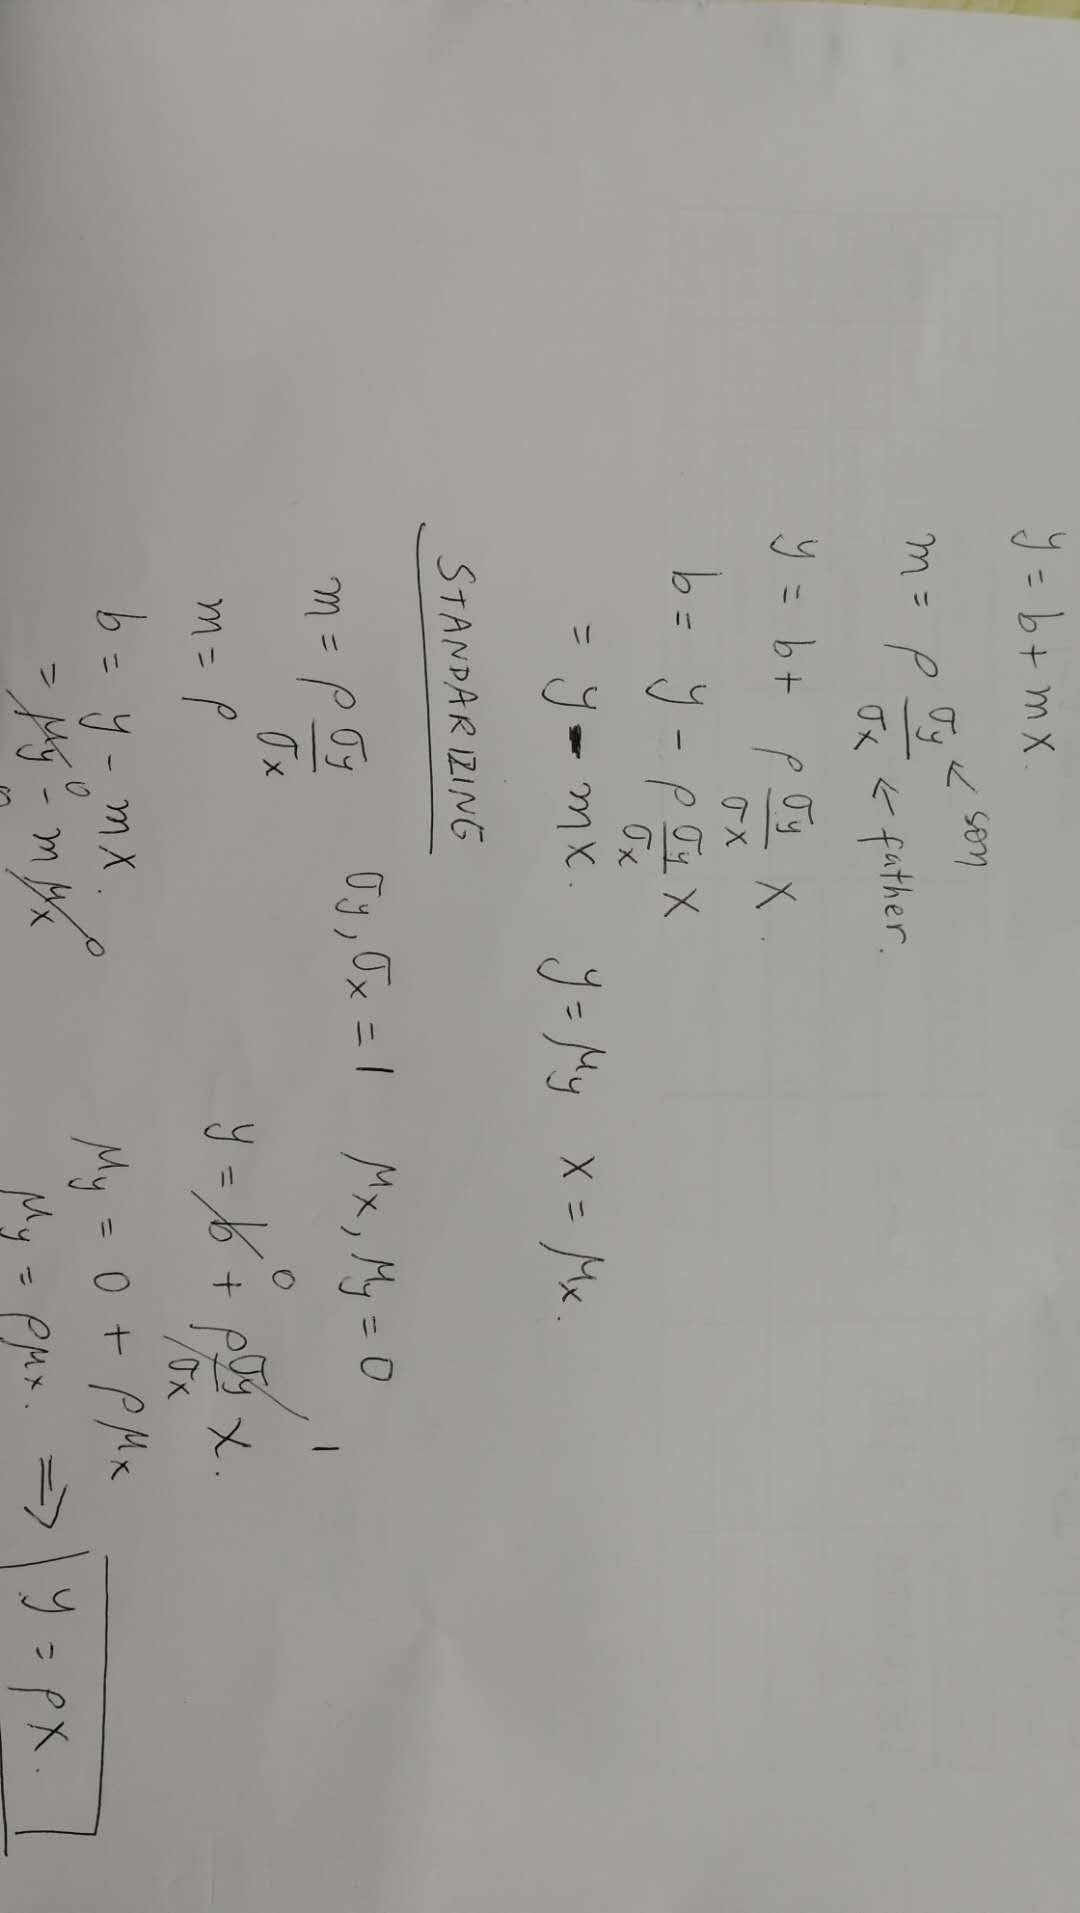 y = b + mx.
m = ρ σy/σx ← son ← father.
y = b + ρ σy/σx x.
b = y - ρ σy/σx x
= y - mx. y = μy x = μx.
STANDARIZING
m = ρ σy/σx σy, σx = 1 μx, μy = 0
m = ρ y = b 0 + ρ σy/σx 1 x.
b = y - mx. μy = 0 + ρμx
= μy 0 - m μx 0 μy = ρμx. ⇒ y = ρx.